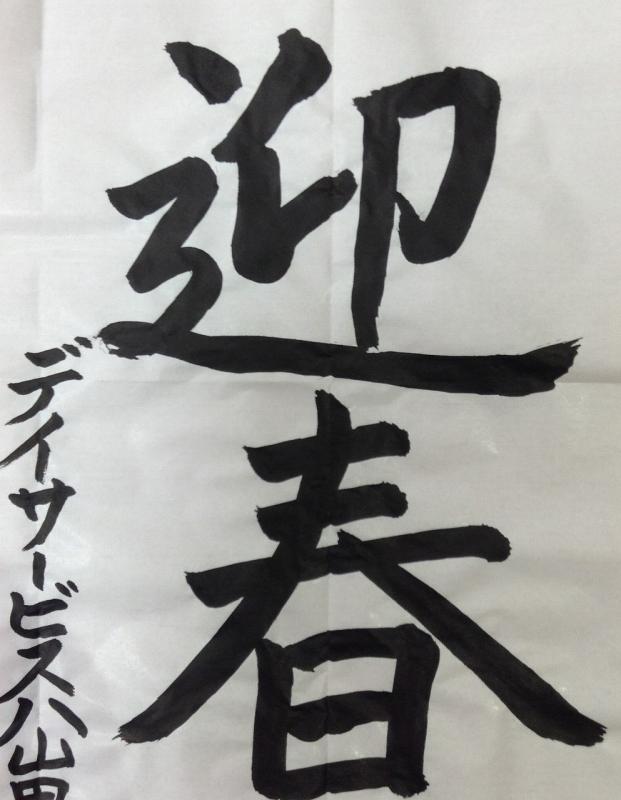 迎春
デイサービス八山田